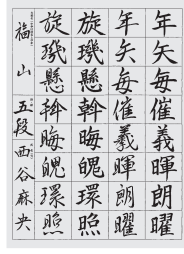 年矢每催羲暉朗曜
年矢每催羲暉朗曜
旋璣懸斡晦魄環照
旋璣懸斡晦魄環照
福山 五段 西谷麻央